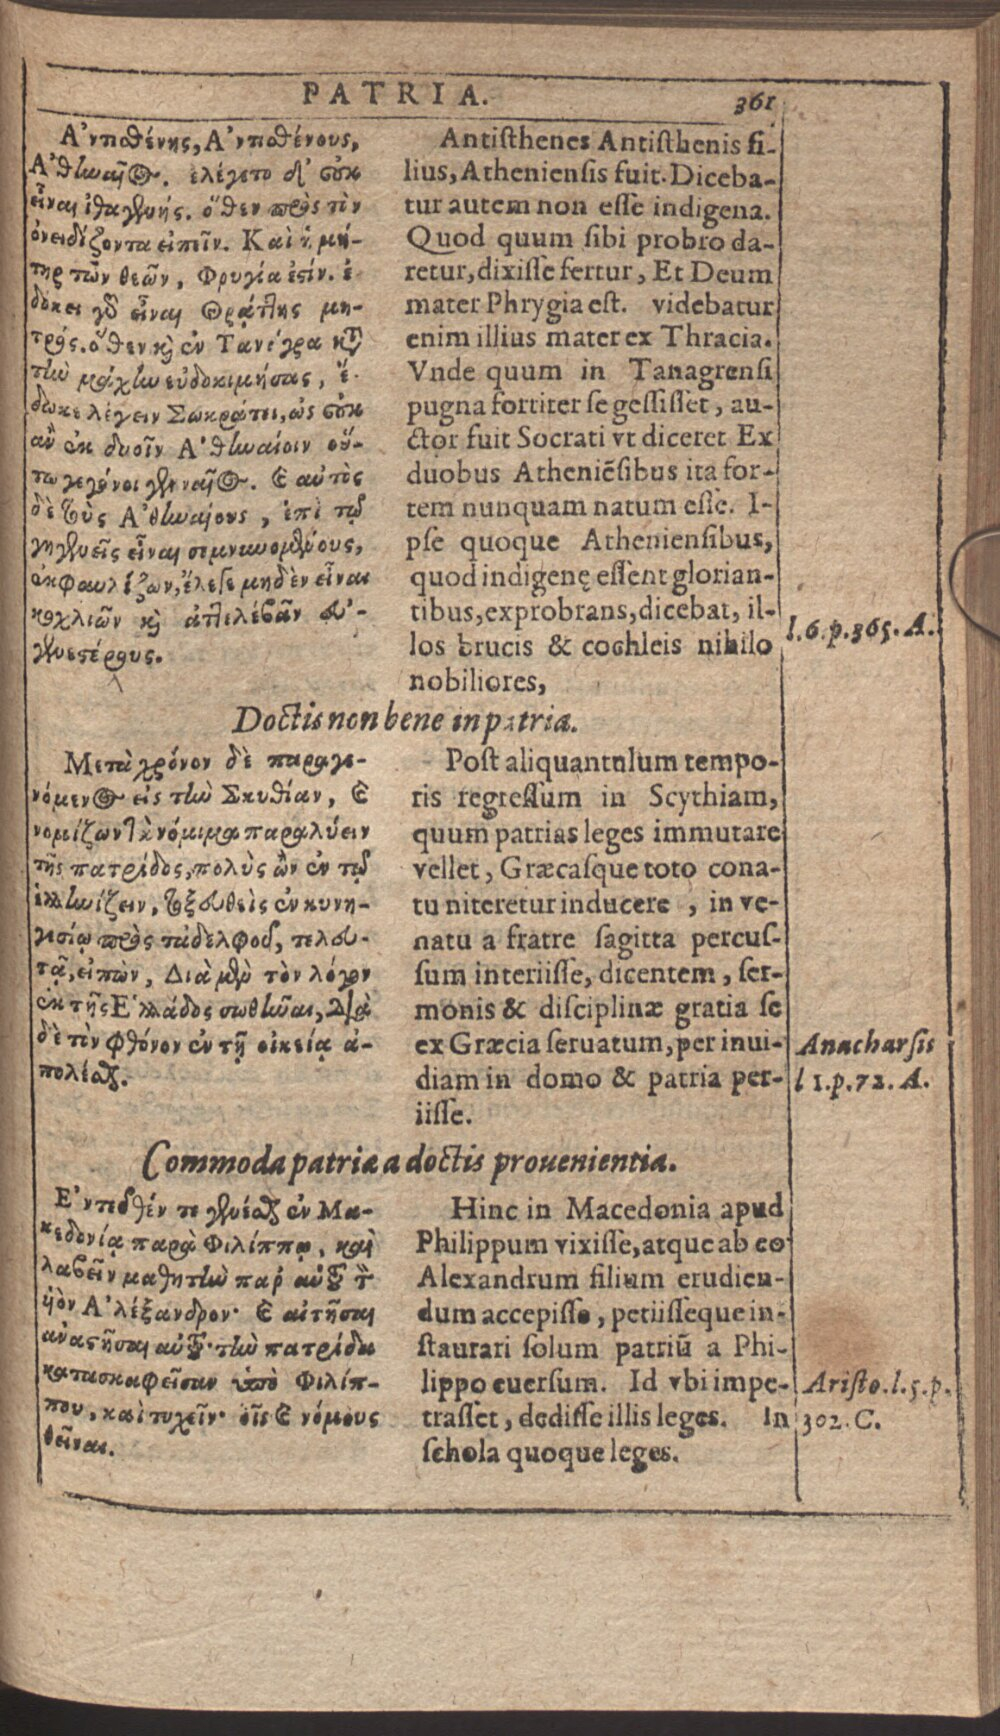 PATRIA. 361
Ἀντισθένης, Ἀντισθένους,
Ἀθηναῖος. ἐλέγετο δ' οὐκ
εἶναι ἰθαγενής. ὅθεν πρὸς τὸν
ὀνειδίζοντα εἰπεῖν. Καὶ ἡ μή-
τηρ τῶν θεῶν, Φρυγία ἐστίν. ἐ
δόκει γὸ εἶναι Θρᾴττης μη-
τρός. ὅθεν κ̀ ἐν Τανάγρᾳ κτ̀
τὴν μάχην εὐδοκιμήσας, ἔ-
δωκε λέγειν Σωκράτει, ὡς οὐκ
ἂν ἐκ δυοῖν Ἀθηναίοιν οὕ-
τω γεγόνοι γενναῖος. Καὶ αὐτὸς
δὲ τοὺς Ἀθηναίους, ἐπὶ τῷ
γηγενεῖς εἶναι σεμνυνομένους,
ἐκφαυλίζων, ἔλεγε μηδὲν εἶναι
κοχλιῶν κ̀ ἀττελέβων εὐ-
γενεστέρους.
Antisthenes Antisthenis fi-
lius, Atheniensis fuit. Diceba-
tur autem non esse indigena.
Quod quum sibi probro da-
retur, dixisse fertur, Et Deum
mater Phrygia est. videbatur
enim illius mater ex Thracia.
Vnde quum in Tanagrensi
pugna fortiter se gessisset, au-
ctor fuit Socrati vt diceret Ex
duobus Atheniẽsibus ita for-
tem nunquam natum esse. I-
pse quoque Atheniensibus,
quod indigenę essent glorian-
tibus, exprobrans, dicebat, il-
los brucis & cochleis nihilo
nobiliores,
l.6.p.365.A.
Doctis non bene in patria.
Μετὰ χρόνον δὲ παραγε-
νόμενος εἰς τὴν Σκυθίαν, καὶ
νομίζων τὰ νόμιμα παραλύειν
τῆς πατρίδος, πολὺς ὢν ἐν τῷ
ἑλληνίζειν, τοξευθεὶς ἐν κυνη-
γεσίῳ πρὸς τἀδελφοῦ, τελευ-
τᾷ, εἰπὼν, Διὰ μὲν τὸν λόγον
ἐκ τῆς Ἑλλάδος σωθῆναι, διὰ
δὲ τὸν φθόνον ἐν τῇ οἰκείᾳ ἀ-
πολέσθαι.
Post aliquantulum tempo-
ris regressum in Scythiam,
quum patrias leges immutare
vellet, Græcasque toto cona-
tu niteretur inducere, in ve-
natu a fratre sagitta percus-
sum interiisse, dicentem, ser-
monis & disciplinæ gratia se
ex Græcia seruatum, per inui-
diam in domo & patria per-
iisse.
Anacharsis
l 1.p.72.A.
Commoda patriæ a doctis prouenientia.
Ἐντεῦθέν τε γενέσθαι ἐν Μα-
κεδονίᾳ παρὰ Φιλίππῳ, καὶ
λαβεῖν μαθητὴν παρ' αὐτοῦ τὸν
υἱὸν Ἀλέξανδρον· καὶ αἰτῆσαι
ἀναστῆσαι αὐτοῦ τὴν πατρίδα
κατασκαφεῖσαν ὑπὸ Φιλίπ-
που, καὶ τυχεῖν· οἷς καὶ νόμους
θεῖναι.
Hinc in Macedonia apud
Philippum vixisse, atque ab eo
Alexandrum filium erudien-
dum accepisse, petiisseque in-
staurari solum patriũ a Phi-
lippo euersum. Id vbi impe-
trasset, dedisse illis leges. In
schola quoque leges.
Aristo.l.5.p.
302.C.